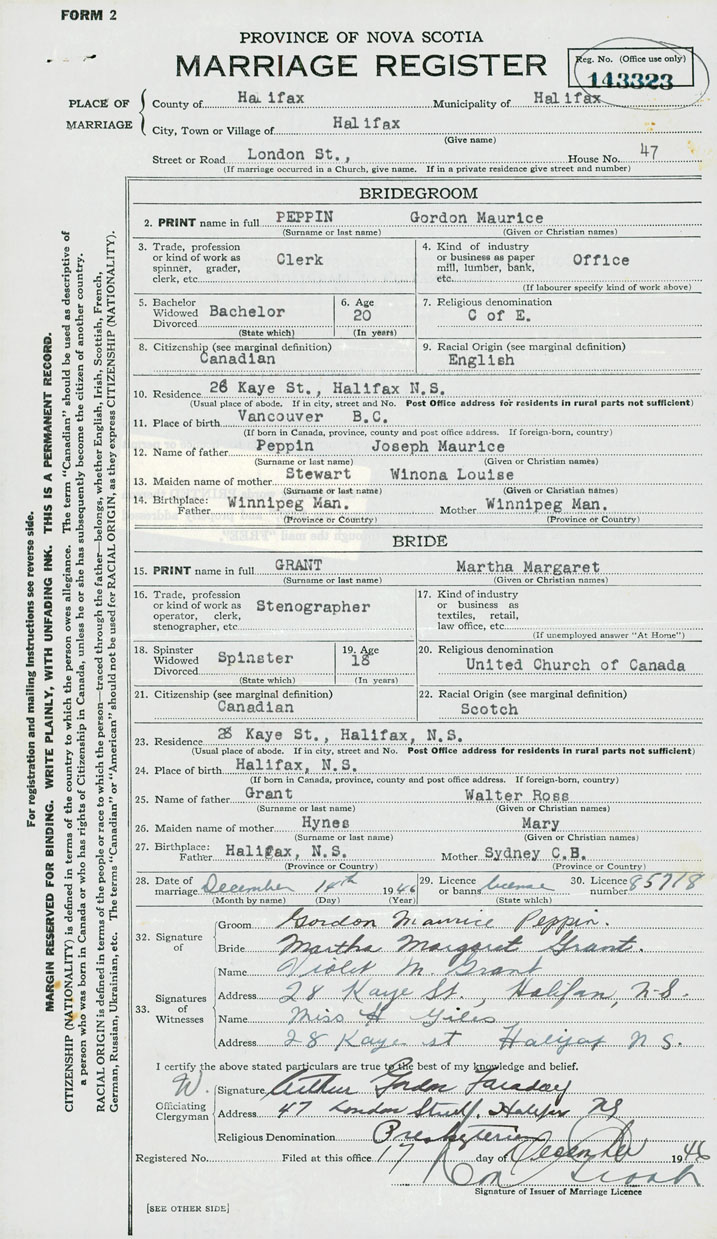 FORM 2
PROVINCE OF NOVA SCOTIA
MARRIAGE REGISTER
Reg. No. (Office use only)
143323
PLACE OF MARRIAGE
County of Halifax Municipality of Halifax
City, Town or Village of Halifax
(Give name)
Street or Road London St., House No. 47
(If marriage occurred in a Church, give name. If in a private residence give street and number)
BRIDEGROOM
2. PRINT name in full PEPPIN Gordon Maurice
(Surname or last name) (Given or Christian names)
3. Trade, profession or kind of work as spinner, grader, clerk, etc. Clerk
4. Kind of industry or business as paper mill, lumber, bank, etc. Office
(If labourer specify kind of work above)
5. Bachelor Widowed Divorced Bachelor
(State which)
6. Age 20
(In years)
7. Religious denomination C of E.
8. Citizenship (see marginal definition) Canadian
9. Racial Origin (see marginal definition) English
10. Residence 28 Kaye St., Halifax N.S.
(Usual place of abode. If in city, street and No. Post Office address for residents in rural parts not sufficient)
11. Place of birth Vancouver B.C.
(If born in Canada, province, county and post office address. If foreign-born, country)
12. Name of father Peppin Joseph Maurice
(Surname or last name) (Given or Christian names)
13. Maiden name of mother Stewart Winona Louise
(Surname or last name) (Given or Christian names)
14. Birthplace: Father Winnipeg Man. Mother Winnipeg Man.
(Province or Country) (Province or Country)
BRIDE
15. PRINT name in full GRANT Martha Margaret
(Surname or last name) (Given or Christian names)
16. Trade, profession or kind of work as operator, clerk, stenographer, etc Stenographer
17. Kind of industry or business as textiles, retail, law office, etc.
(If unemployed answer "At Home")
18. Spinster Widowed Divorced Spinster
(State which)
19. Age 18
(In years)
20. Religious denomination United Church of Canada
21. Citizenship (see marginal definition) Canadian
22. Racial Origin (see marginal definition) Scotch
23. Residence 28 Kaye St., Halifax, N.S.
(Usual place of abode. If in city, street and No. Post Office address for residents in rural parts not sufficient)
24. Place of birth Halifax, N.S.
(If born in Canada, province, county and post office address. If foreign-born, country)
25. Name of father Grant Walter Ross
(Surname or last name) (Given or Christian names)
26. Maiden name of mother Hynes Mary
(Surname or last name) (Given or Christian names)
27. Birthplace: Father Halifax, N.S. Mother Sydney C.B.
(Province or Country) (Province or Country)
28. Date of marriage December 14th 1946
(Month by name) (Day) (Year)
29. Licence or banns license
(State which)
30. Licence number 85718
32. Signature of
Groom Gordon Maurice Peppin.
Bride Martha Margaret Grant.
33. Signatures of Witnesses
Name Violet M. Grant
Address 28 Kaye St., Halifax, N.S.
Name Miss H Giles
Address 28 Kaye st Halifax N S.
I certify the above stated particulars are true to the best of my knowledge and belief.
W.
Officiating Clergyman
Signature Arthur Gordon Faraday
Address 47 London Street, Halifax NS
Religious Denomination Presbyterian
Registered No. Filed at this office 17 day of December 1946
Signature of Issuer of Marriage Licence
[SEE OTHER SIDE]
For registration and mailing instructions see reverse side.
MARGIN RESERVED FOR BINDING. WRITE PLAINLY, WITH UNFADING INK. THIS IS A PERMANENT RECORD.
CITIZENSHIP (NATIONALITY) is defined in terms of the country to which the person owes allegiance. The term "Canadian" should be used as descriptive of
a person who was born in Canada or who has rights of Citizenship in Canada, unless he or she has subsequently become the citizen of another country.
RACIAL ORIGIN is defined in terms of the people or race to which the person—traced through the father—belongs, whether English, Irish, Scottish, French,
German, Russian, Ukrainian, etc. The terms "Canadian" or "American" should not be used for RACIAL ORIGIN, as they express CITIZENSHIP (NATIONALITY).